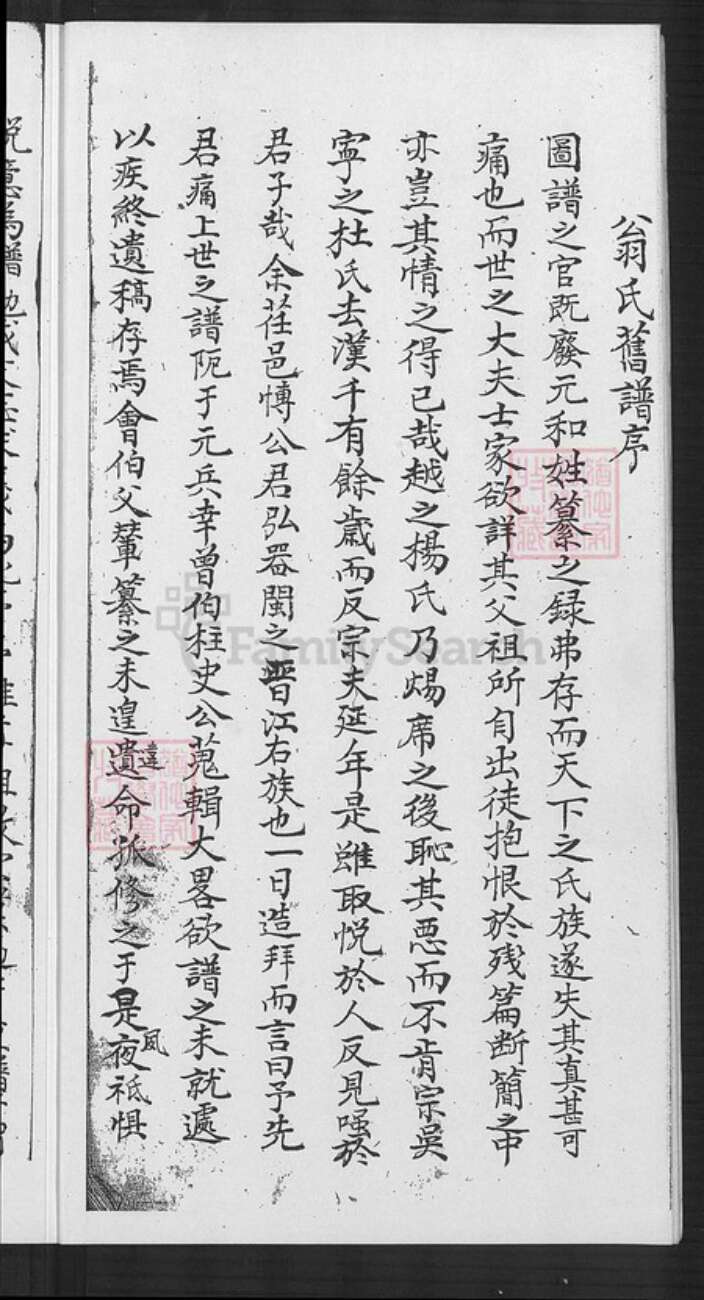 翁氏舊譜序
圖譜之官既廢元和姓纂之録弗存而天下之氏族遂失其真甚可
痛也而世之大夫士家欲詳其父祖所自出徒抱恨於残篇断簡之中
亦豈其情之得已哉越之楊氏乃煬席之後恥其惡而不肯宗吳
寧之杜氏去漢千有餘歲而反宗夫延年是雖取悦於人反見嗤於
君子哉余莅邑博公君弘器閩之晋江右族也一日造拜而言曰予先
君痛上世之譜阨于元兵幸曾伯柱史公蒐輯大畧欲譜之未就遽
以疾終遺稿存焉會伯父輩纂之未遑遺違命孤修之于是夜夙祗惧
FamilySearch